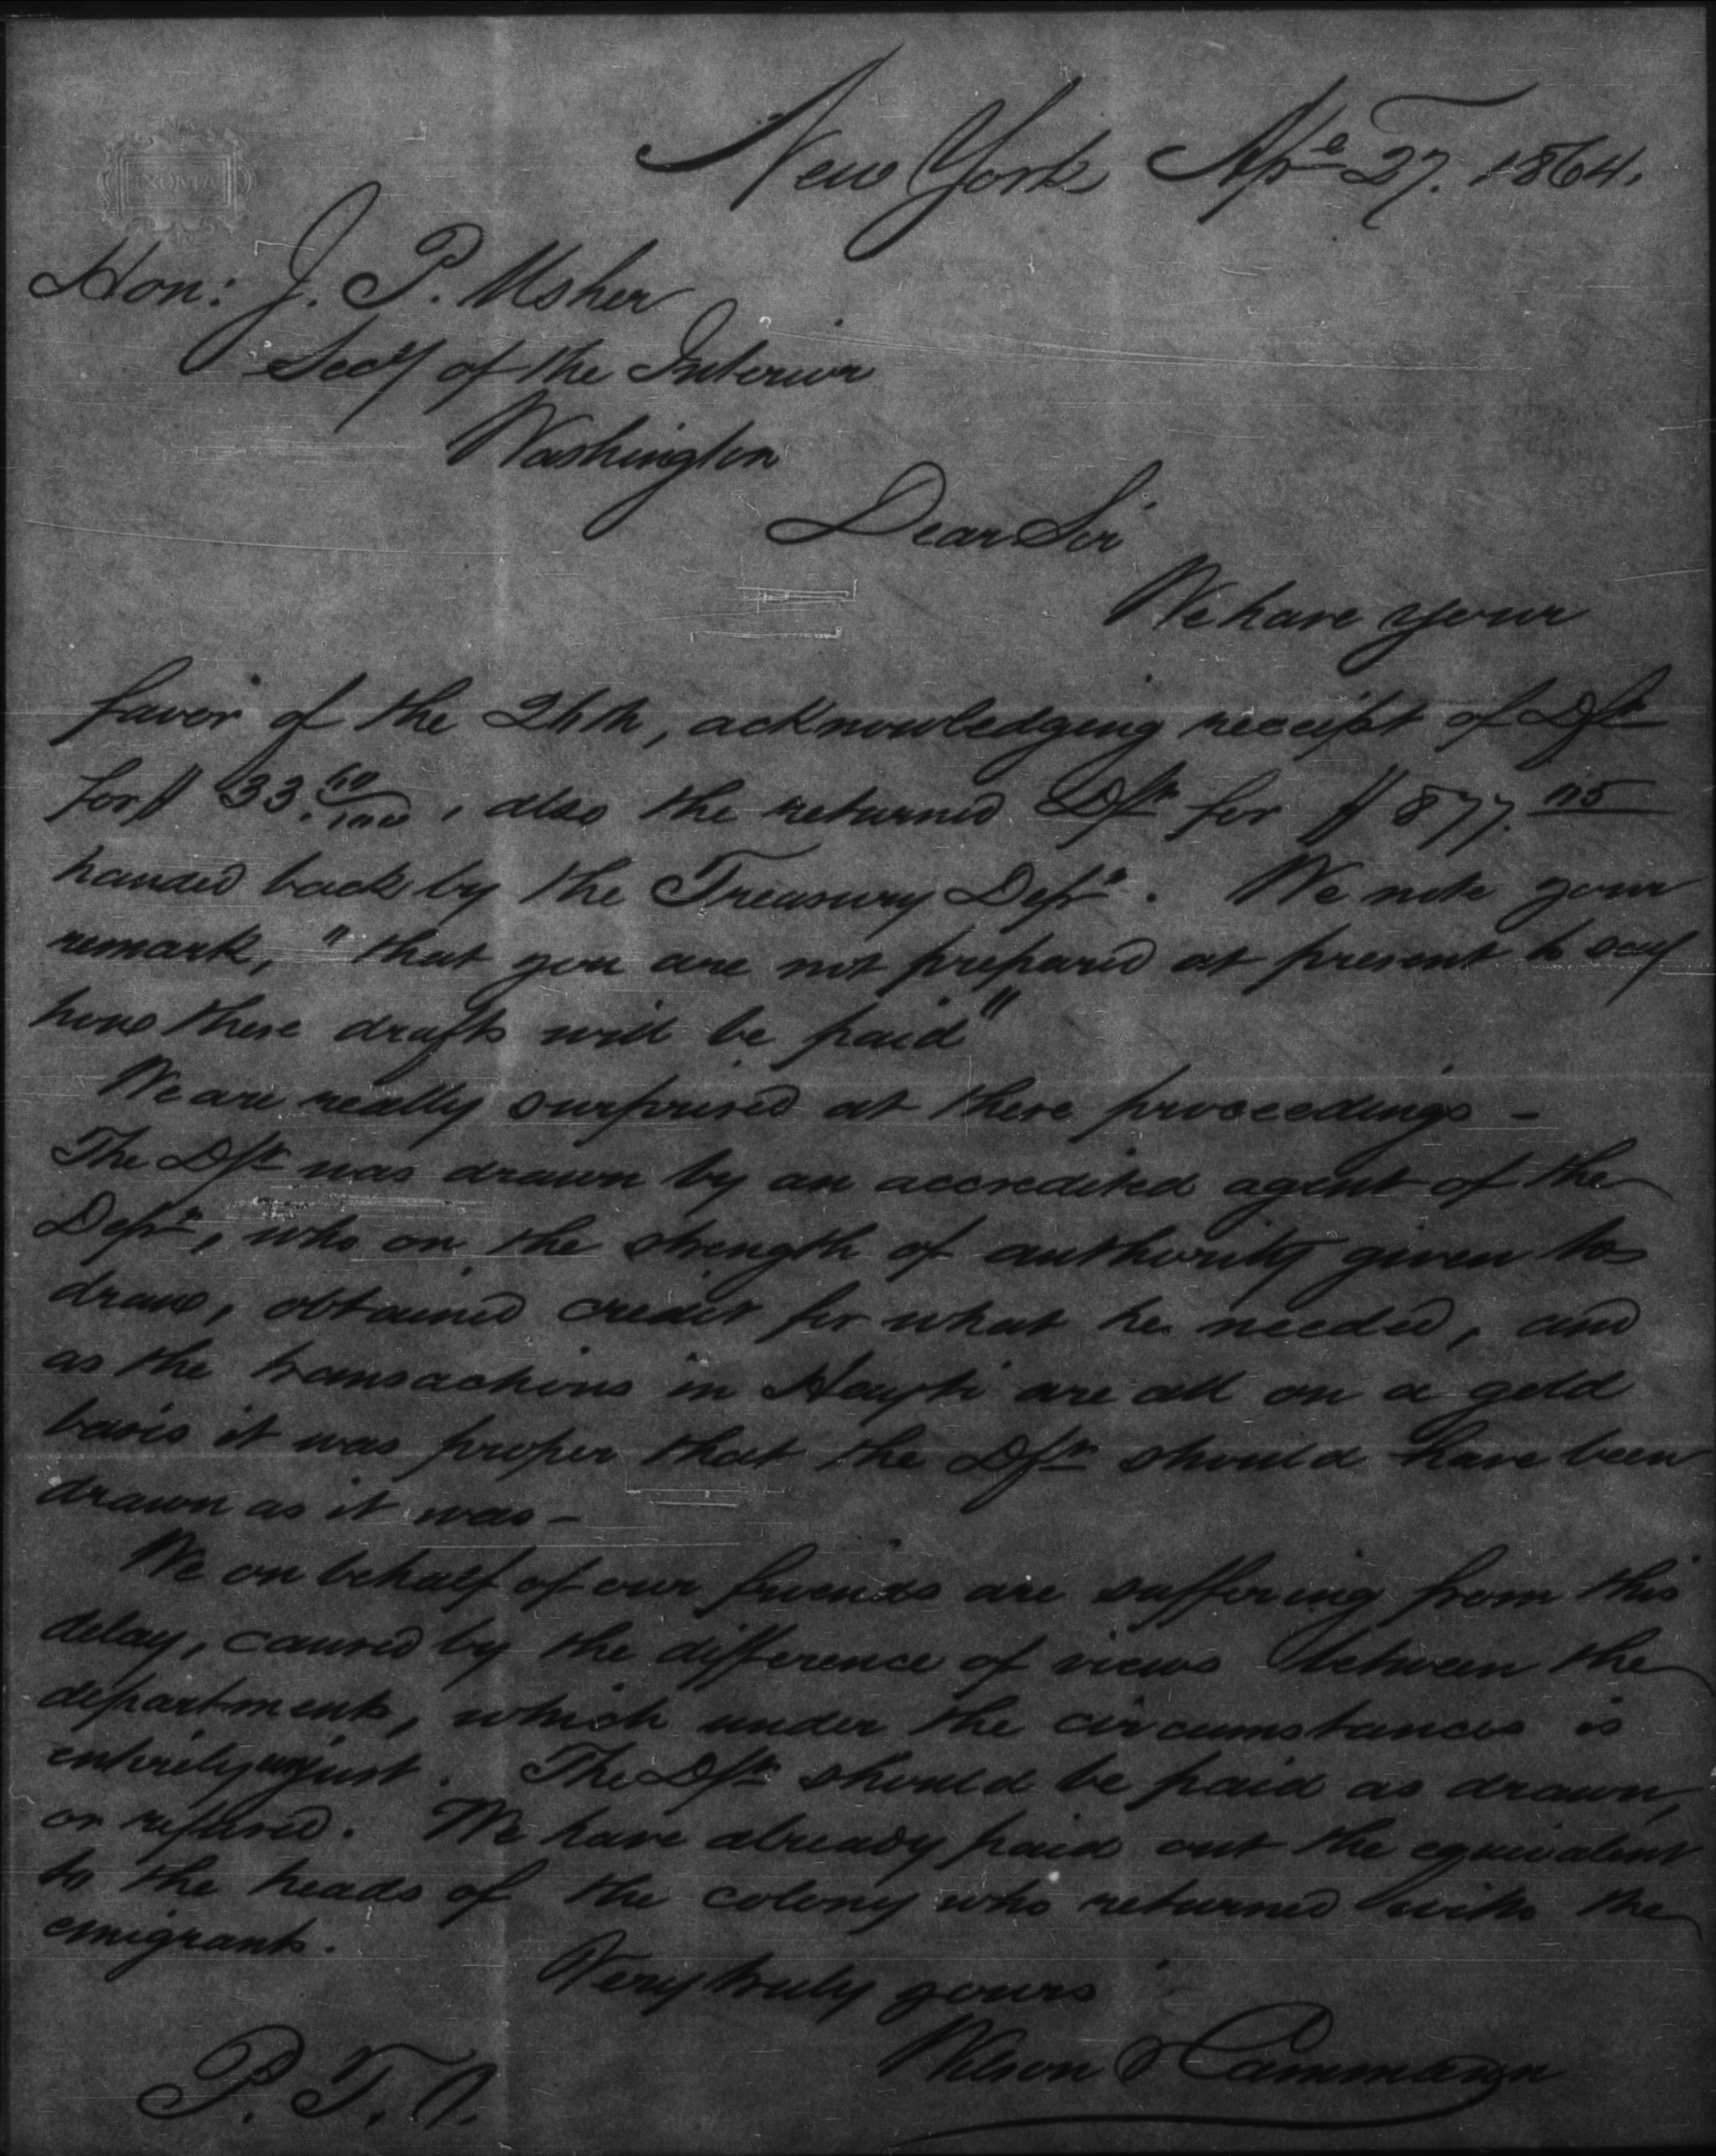 New York Apl 27. 1864.
Hon: J. P. Usher
Secy of the Interior
Washington
Dear Sir
We have your
favor of the 26th, acknowledging receipt of Dft
for $ 33. 60/100, also the returned Dft for $ 877. 05
handed back by the Treasury Dept. We note your
remark, "that you are not prepared at present to say
how these drafts will be paid"
We are really surprised at these proceedings -
The Dft was drawn by an accredited agent of the
Dept, who on the strength of authority given to
draw, obtained credit for what he needed, and
as the transactions in Hayti are all on a gold
basis it was proper that the Dft should have been
drawn as it was -
We on behalf of our friends are suffering from this
delay, caused by the difference of views between the
departments, which under the circumstances is
entirely unjust. The Dft should be paid as drawn,
or refused. We have already paid out the equivalent
to the heads of the colony who returned with the
emigrants.
Very truly yours
Wilson & Cammann
P. T. O.